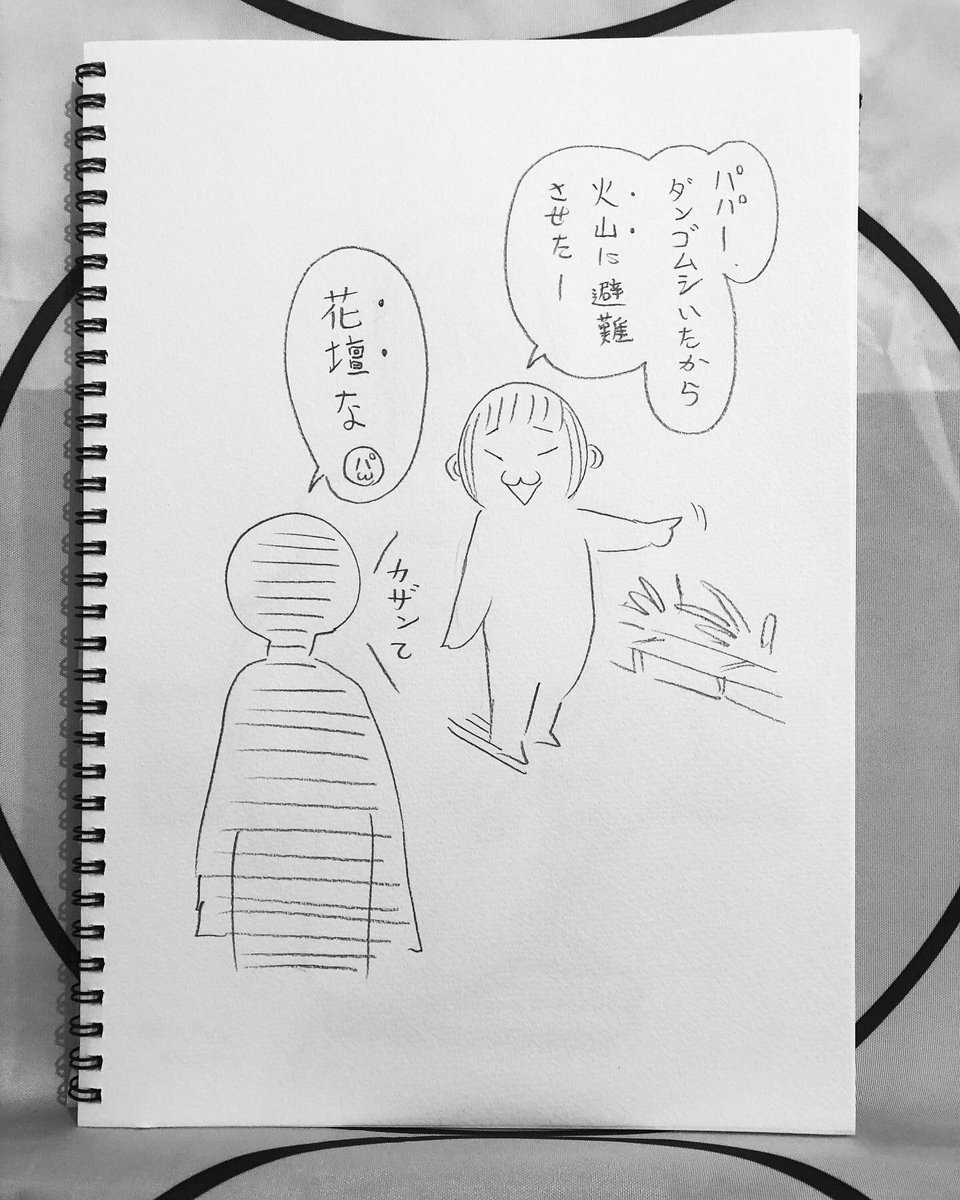 パパー、
ダンゴムシいたから
火山に避難
させたー
花壇な
パ
カザンて